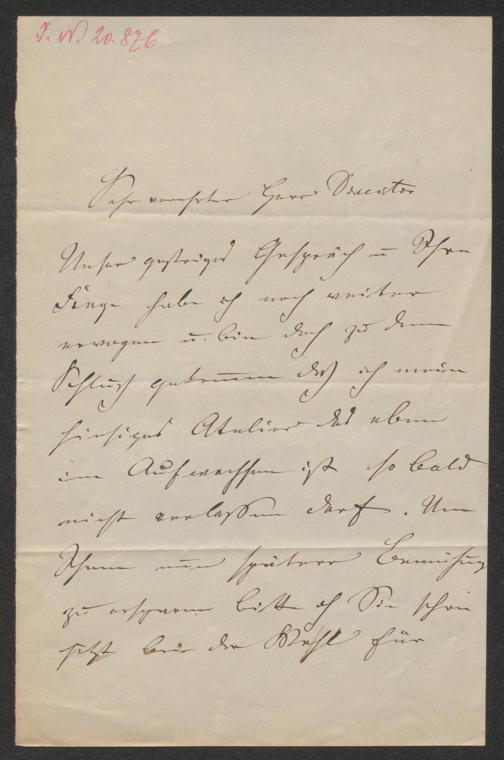 J. N. 20.876
Sehr verehrter Herr Director
Unser gestriges Gespräch u Ihre
Frage habe ich noch weiter
erwogen u. bin doch zu dem
Schluß gekommen daß ich mein
hiesiges Atelier das eben
im Aufwachsen ist so bald
nicht verlassen darf. Um
Ihnen nun spätere Bemühung
zu ersparen bitte ich Sie schon
jetzt bei der Wahl für